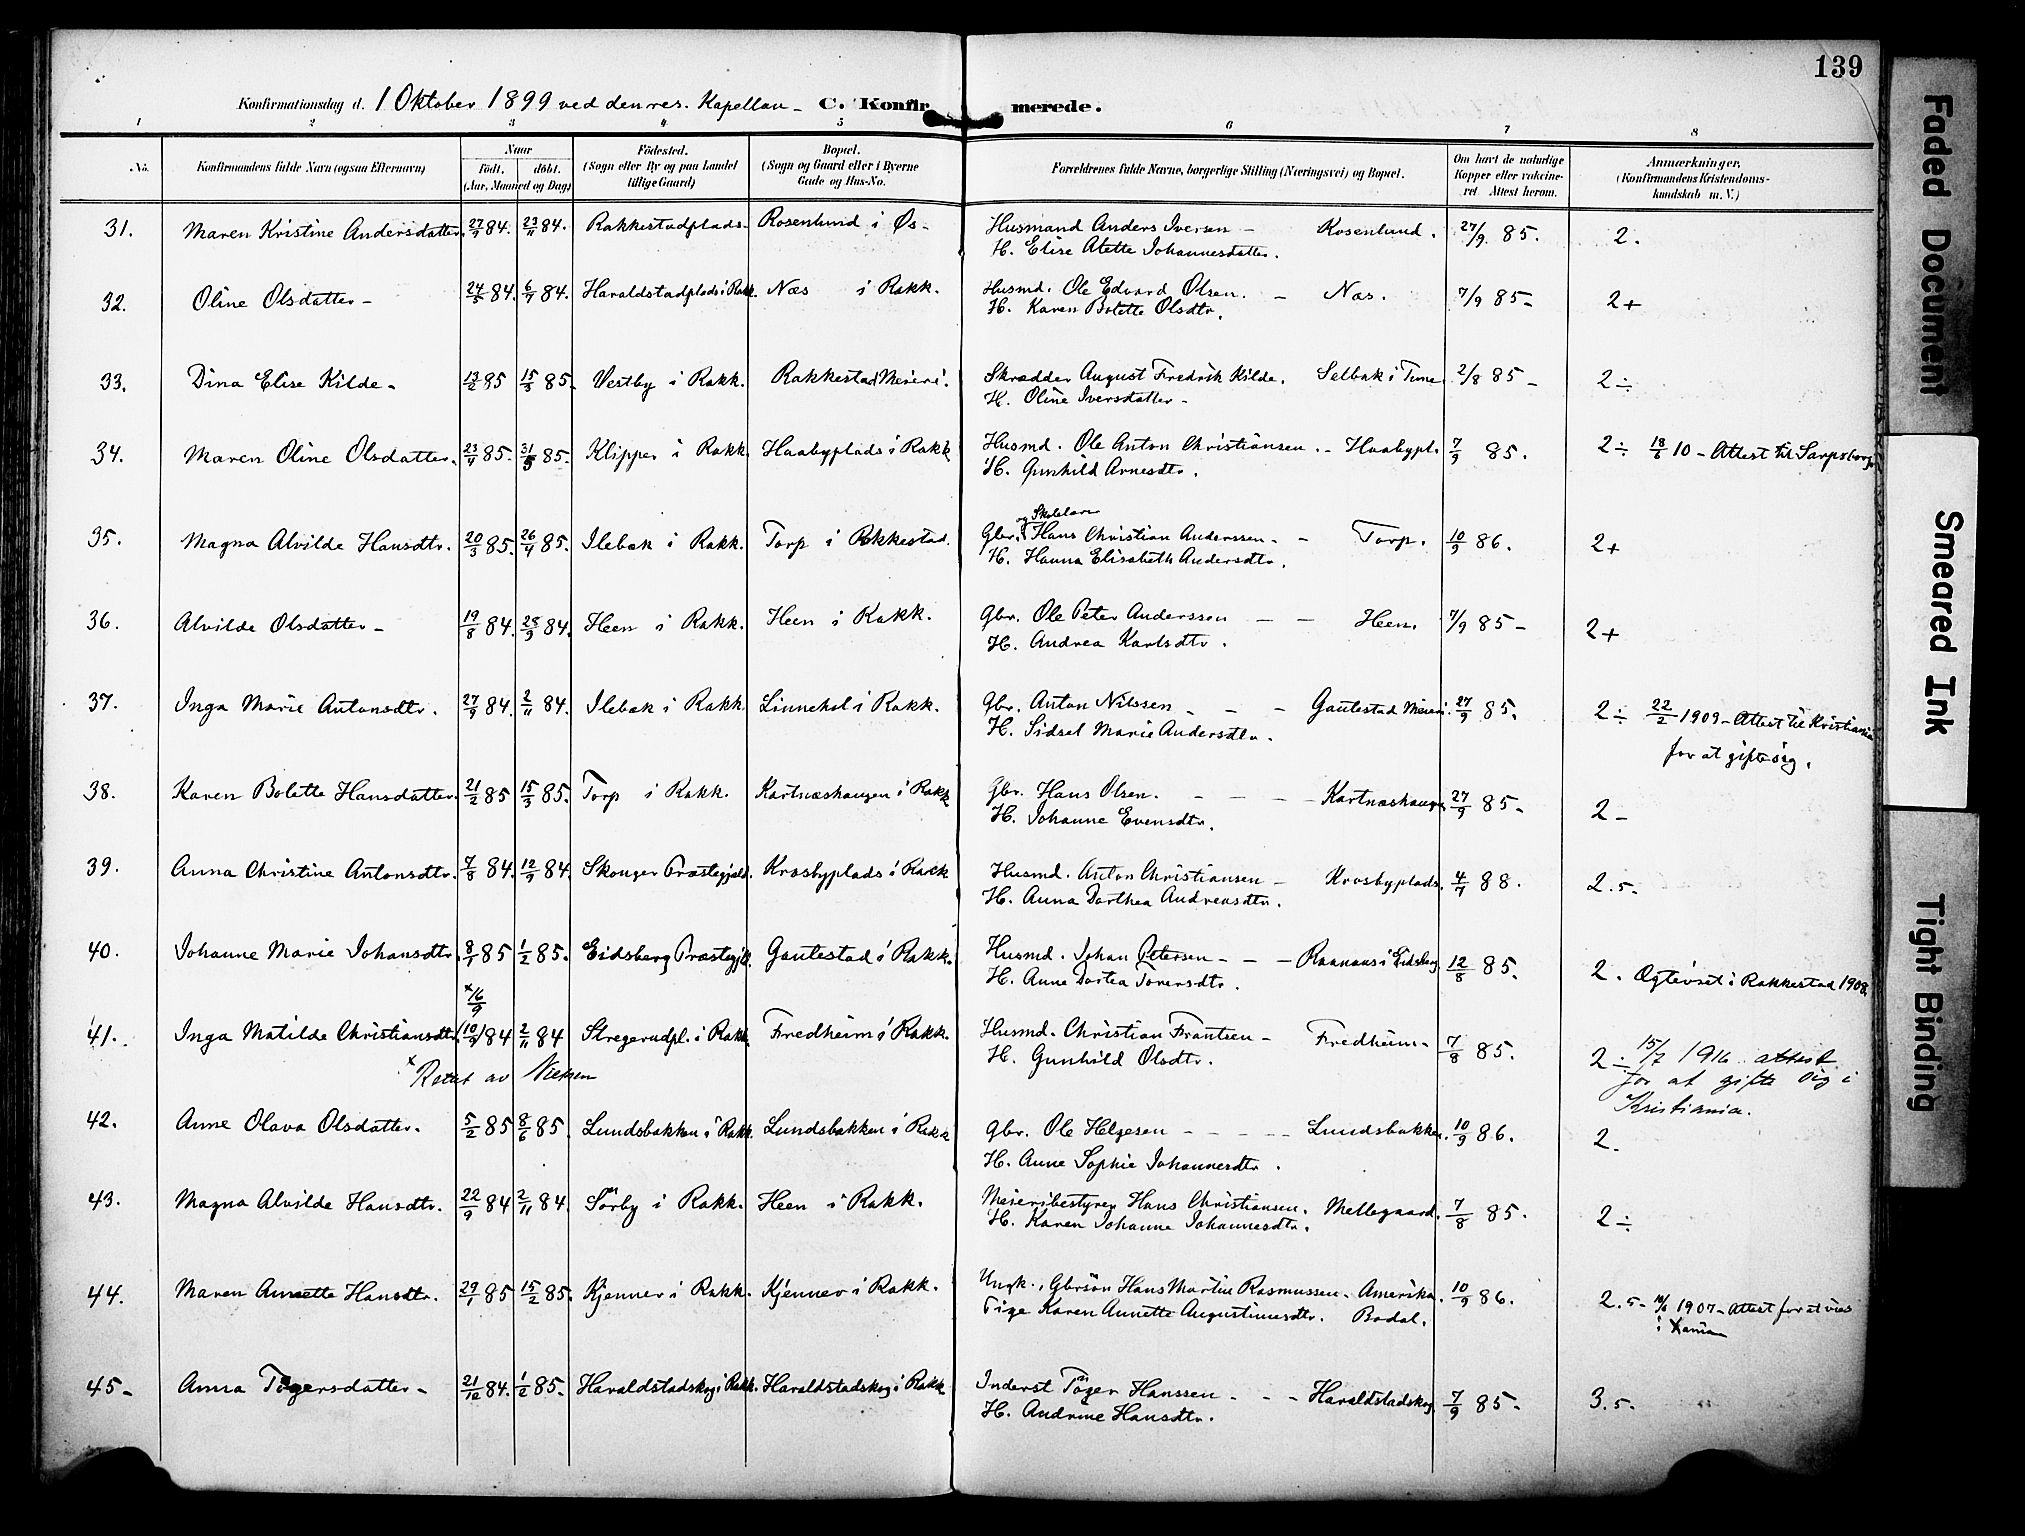 139
Konfirmationsdag d. 1 Oktober 1899 ved den res. Kapellan – C. Konfirmerede.
1 2 3 4 5 6 7 8
No. Konfirmandens fulde Navn (ogsaa Efternavn) Naar født. døbt. (Aar, Maaned og Dag) Fødested. (Sogn eller By og paa Landet tillige Gaard) Bopæl. (Sogn og Gaard eller i Byerne Gade og Hus-No. Forældrenes fulde Navne, borgerlige Stilling (Næringsvei) og Bopæl. Om havt de naturlige Kopper eller vakcineret. Attest herom. Anmærkninger, (Konfirmandens Kristendomskundskab m. V.)
31. Maren Kristine Andersdatter. 27/9 84. 23/11 84. Rakkestadplads. Rosenlund i Øs– Husmand Anders Iversen – Rosenlund. 27/9. 85. 2.
H. Elise Alette Johannesdatter.
32. Oline Olsdatter – 84. 6/7 84. Haraldstadplads i Rakk. Næs i Rakk. Husmd. Ole Edvard Olsen. – Næs. 7/9 85– 2+
H. Karen Bolette Olsdtr.
33. Dina Elise Kilde – 13/2 85 15/3 85– Vestby i Rakk. Rakkestad Meieri. Skrædder August Fredrik Kilde. Selbak i Tune 2/8 85– 2÷
H. Oline Iversdatter –
34. Maren Oline Olsdatter. 23/4 85. 31/5 85. Klipper i Rakk. Haabyplads i Rakk Husmd. Ole Anton Christiansen. – Haabypl. 7/9 85. 2÷ 18/6 10 – Attest til Sarpsborg.
H. Gunhild Arnesdtr.
og Skolelærer
35. Magna Alvilde Hansdtr. 20/3 85. 26/4 85. Ilebæk i Rakk. Torp i Rakkestad. Gbr. Hans Christian Anderssen – – Torp. 10/9 86. 2+
H. Hanna Elisabeth Andersdtr.
36. Alvilde Olsdatter – 19/8 84. 28/9 84. Heen i Rakk. Heen i Rakk. Gbr. Ole Peter Anderssen – – Heen. 7/9 85– 2+
H. Andrea Karlsdtr.
37. Inga Marie Antonsdtr. 27/9 84. 2/11 84. Ilebæk i Rakk. Linnekol i Rakk. Gbr. Anton Nilssen – – – Gautestad Meieri. 27/9 85. 2÷ 22/2 1909 – Attest til Kristiania
H. Sidsel Marie Andersdtr. for at gifte sig.
38. Karen Bolette Hansdatter. 21/2 85 15/3 85. Torp i Rakk. Kartnæshaugen i Rakk Gbr. Hans Olsen. – – – Kartnæshaugen 27/9 85– 2–
H. Johanne Evensdtr.
39. Anna Christine Antonsdtr. 7/8 84. 12/9 84. Skonger Præstegjeld. Krosbyplads i Rakk Husmd. Anton Christiansen – Krosbyplads. 4/7 88. 2.5–
H. Anna Dorthea Andreasdtr.
40. Johanne Marie Johansdtr. 8/1 85 1/2 85. Eidsberg Præstegjld. Gautestad i Rakk. Husmd. Johan Petersen – – – Raanaas i Eidsberg 12/8 85. 2. Ægteviet i Rakkestad 1908.
H. Anne Dortea Torersdtr.
× 16/9
41. Inga Matilde Christiansdtr. (10/9) 84 2/11 84 Stregerudpl. i Rakk. Fredheim i Rakk. Husmd. Christian Frantsen – Fredheim – 7/8 85. 2÷ 15/7 1916 attest
× Rettet av Nielsen H. Gunhild Olsdtr. for at gifte sig i
Kristiania.
42. Anne Olava Olsdatter. 5/2 85 8/6 85. Lundsbakken i Rakk. Lundsbakken i Rakk Gbr. Ole Helgesen – – – – Lundsbakken. 10/9 86. 2.
H. Anne Sophie Johannesdtr.
43. Magna Alvilde Hansdtr. 22/9 84 2/11 84. Sørby i Rakk. Heen i Rakk. Meieribestyrer Hans Christiansen. Mellegaard. 7/8 85. 2÷
H. Karen Johanne Johannesdtr.
44. Maren Annette Hansdtr. 29/1 85 15/2 85. Kjenner i Rakk. Kjenner i Rakk. Ungk., Gbrsøn Hans Martin Rasmussen – Amerika. 10/9 86. 2.5– 1907 – Attest for at vies
Pige Karen Annette Augustinusdtr. Bodal. i Xania
45– Anna Tøgersdatter – 21/10 84. 1/2 85– Haraldstadskog i Rakk. Haraldstadskog i Rakk Inderst Tøger Hanssen – – – Haraldstadskog. 7/9 85– 3.5–
H. Andrine Hansdtr.
Faded Document
Smeared Ink
Tight Binding